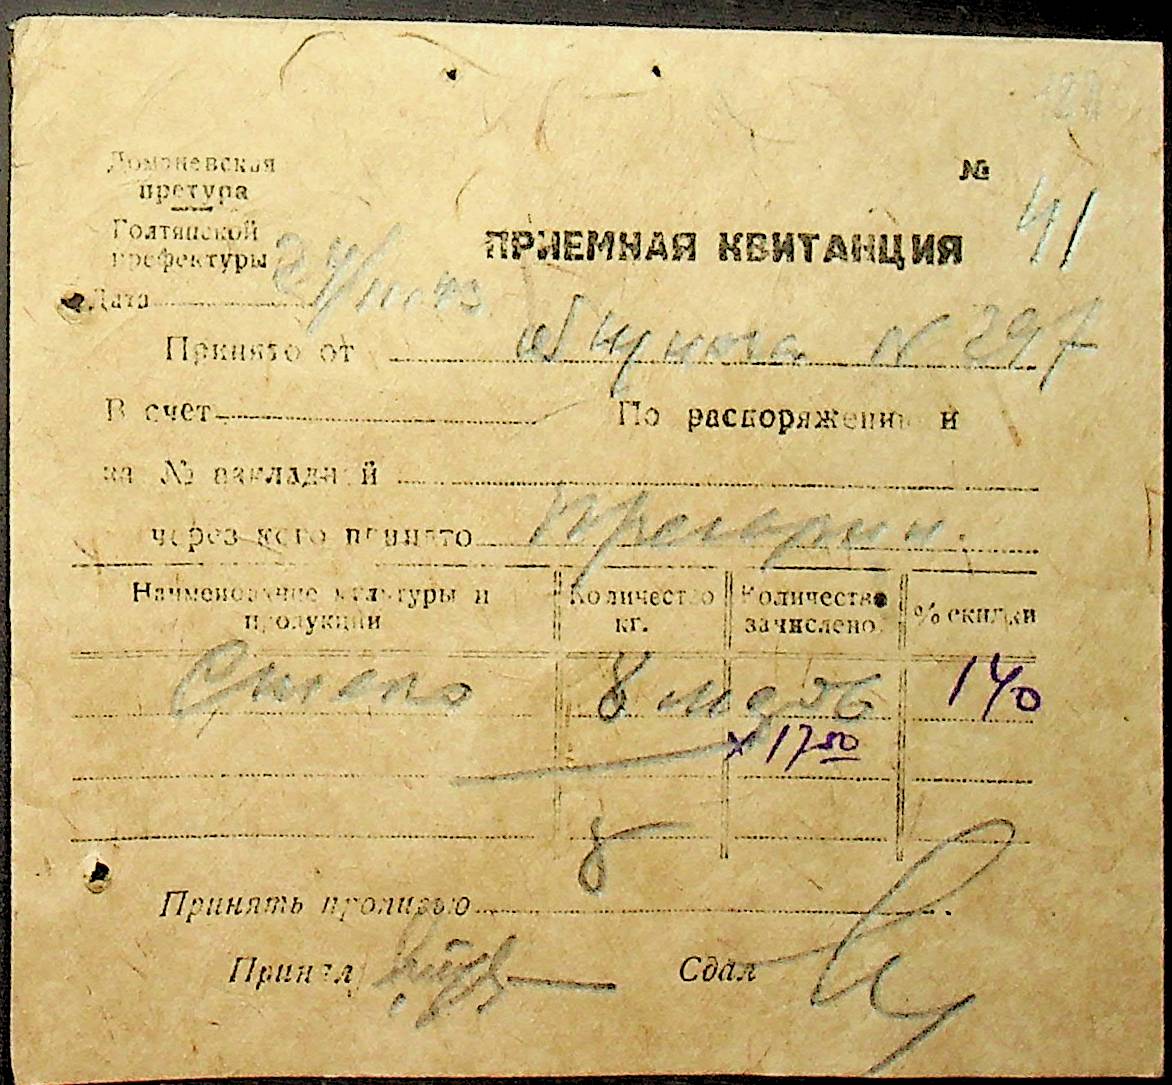 Доманевская
претура
№ 41
Голтянской
префектуры
ПРИЕМНАЯ КВИТАНЦИЯ
Дата 24/
Принято от общины N 297
В счет По распоряжению и
за № накладной
через кого принято Григорий.
Наименование культуры и продукции
Количество кг.
Количество зачислено
% скидки
Сило 8 140
x 1750
8
Принять прописью
Принял Сдал